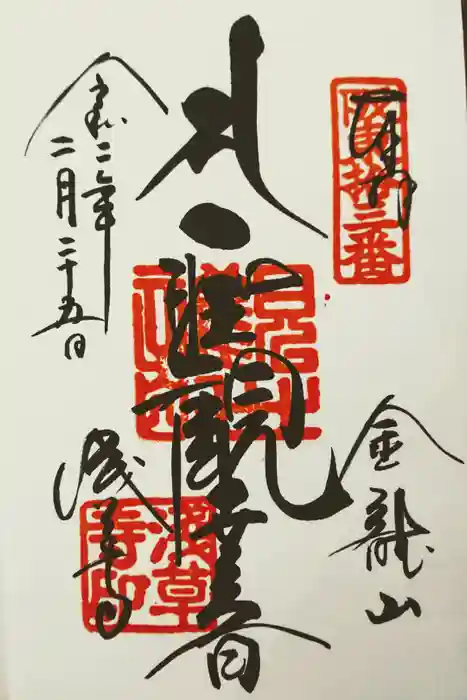 奉拝
坂東拾三番
金龍山
聖観世音
令和二年
二月二十五日
浅草寺
浅草
寺印